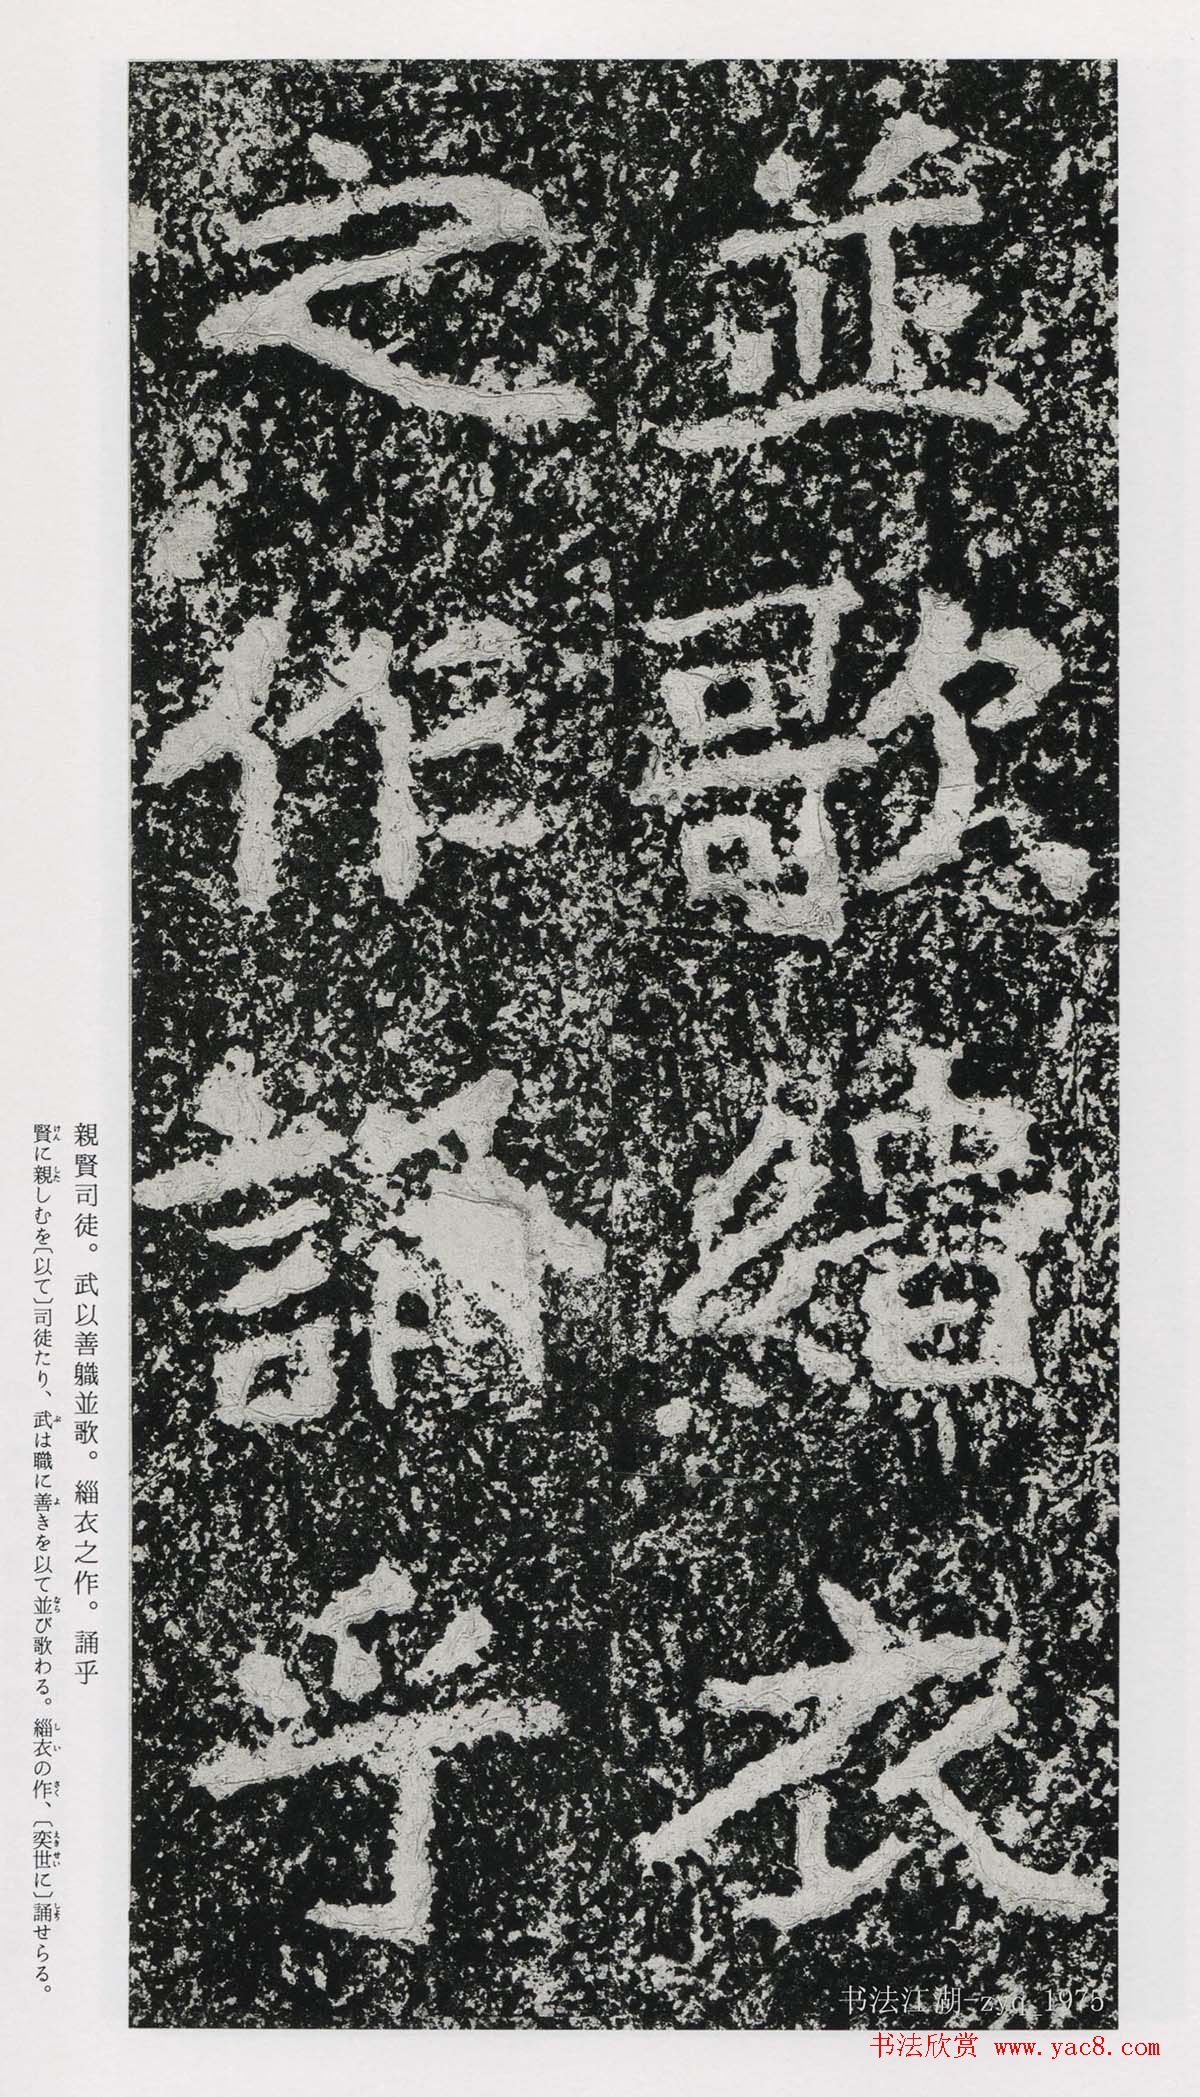 並歌緇衣
之作誦乎
親賢司徒。武以善軄並歌。緇衣之作。誦乎
賢に親しむを〔以て〕司徒たり、武は職に善きを以て並び歌わる。緇衣の作、〔奕世に〕誦せらる。
书法江湖-zyq_1975
书法欣赏 www.yac8.com